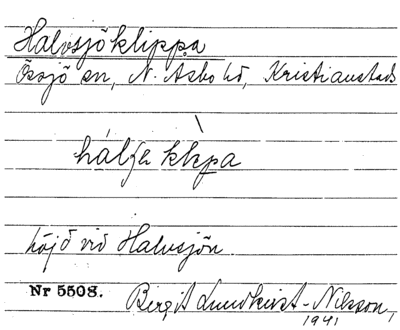 Halvsjöklippa
Össjö sn, N. Åsbo hd, Kristianstads
höjd vid Halvsjön.
Nr 5508.
Birgit Lundkvist-Nilsson,
1941